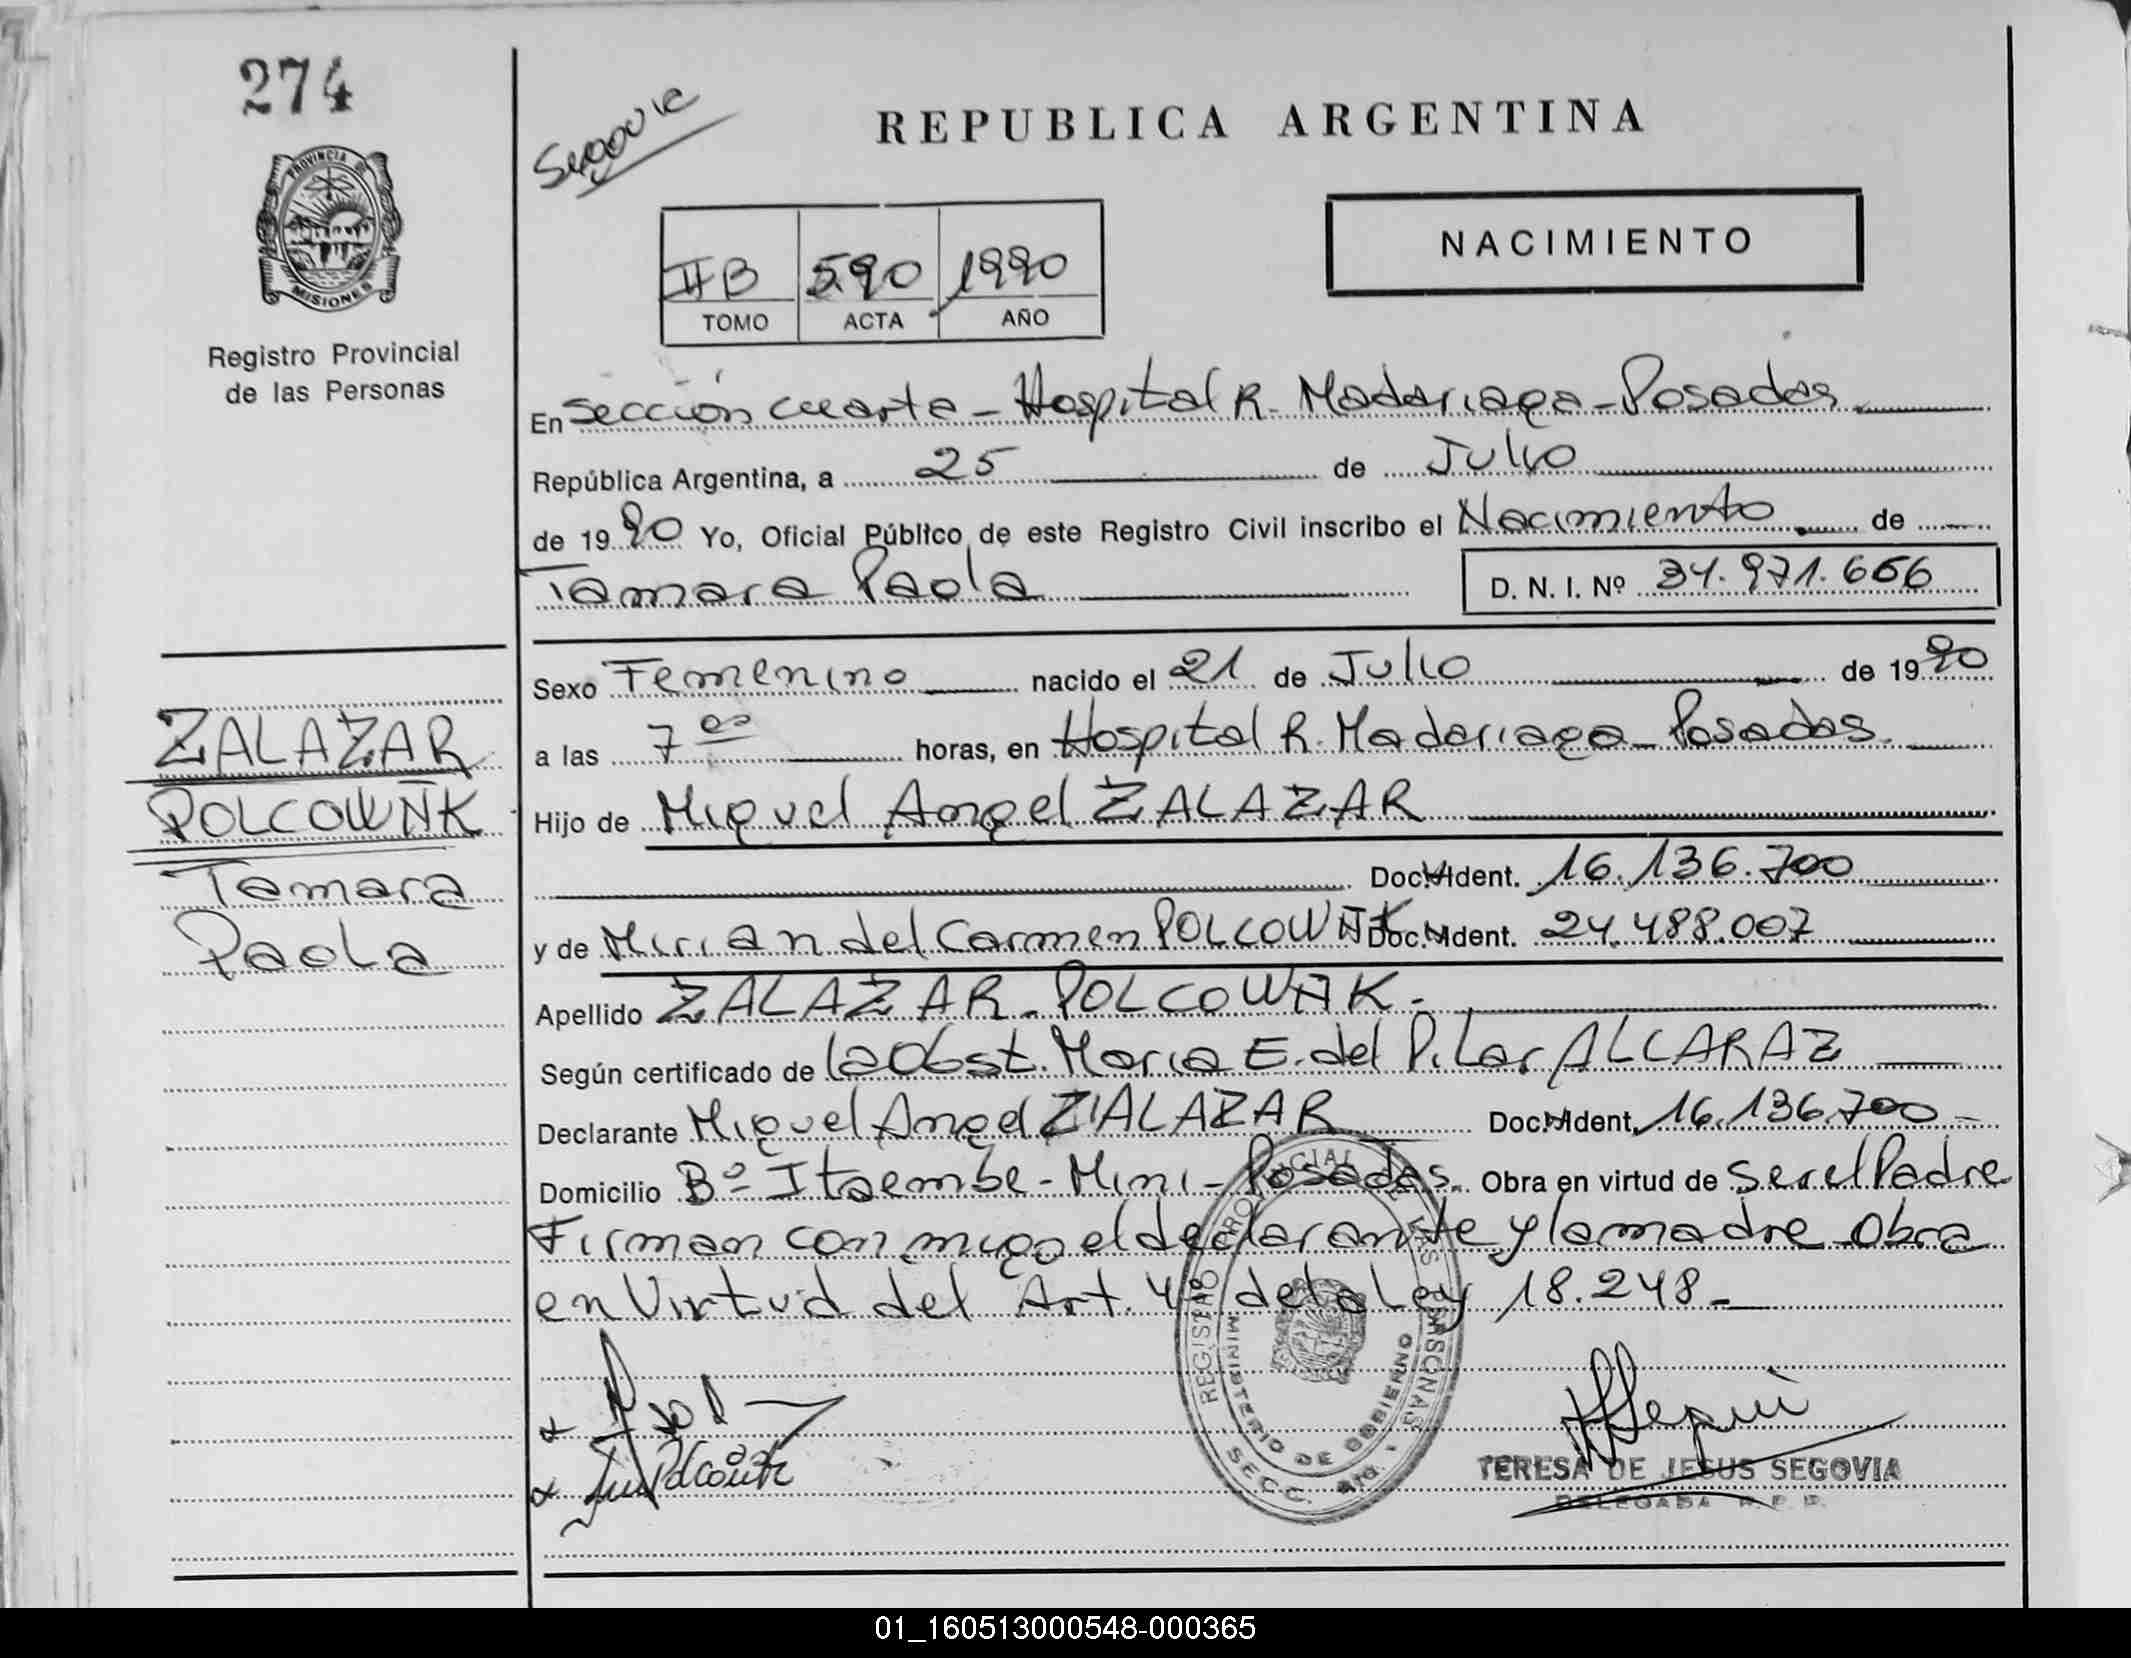 274
Segovia
REPUBLICA ARGENTINA
PROVINCIA DE
MISIONES
Registro Provincial
de las Personas
NACIMIENTO
II B 590 1990
TOMO ACTA AÑO
En Sección cuarta - Hospital R. Madariaga - Posadas
República Argentina, a 25 de Julio
de 1990 Yo, Oficial Público de este Registro Civil inscribo el Nacimiento de
Tamara Paola D. N. I. Nº 34.971.666
Sexo Femenino nacido el 21 de Julio de 1990
a las 7 00 horas, en Hospital R. Madariaga - Posadas.
Hijo de Miguel Angel ZALAZAR
Doc. Ident. 16.136.700
y de Mirian del Carmen POLCOWÑK Doc. Ident. 24.488.007
Apellido ZALAZAR - POLCOWÑK -
Según certificado de la Obst. Maria E. del Pilar ALCARAZ
Declarante Miguel Angel ZALAZAR Doc. Ident. 16.136.700 -
Domicilio Bº Itaembe - Mini - Posadas. Obra en virtud de ser el Padre
Firman con migo el declarante y la madre Obra
en Virtud del Art. 4º de la Ley 18.248 -
ZALAZAR
POLCOWÑK
Tamara
Paola
REGISTRO PROVINCIAL DE LAS PERSONAS
MINISTERIO DE GOBIERNO
SECC. 4ta.
TERESA DE JESUS SEGOVIA
DELEGADA R. P. P.
01_160513000548-000365